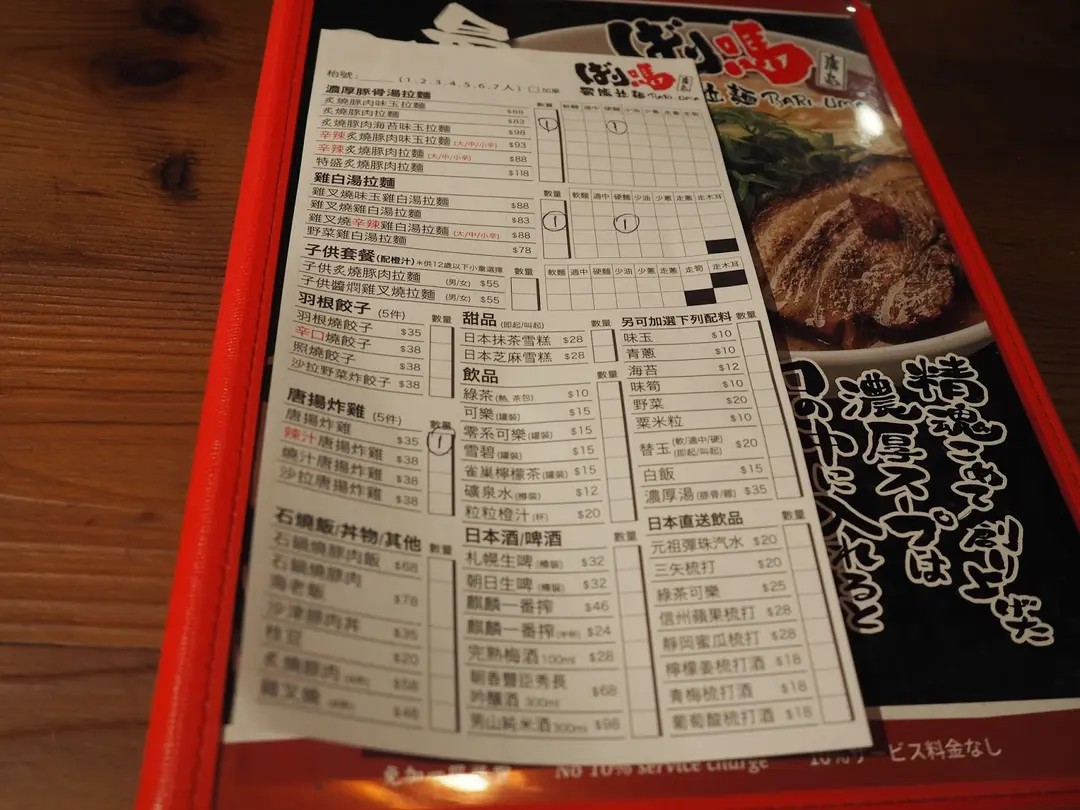 枱號:_____ (1.2.3.4.5.6.7人) □加單
濃厚豚骨湯拉麵 數量 軟麵 適中 硬麵 少油 少蔥 走蔥 走筍
炙燒豚肉味玉拉麵 $88
炙燒豚肉拉麵 $83
炙燒豚肉海苔味玉拉麵 $98
辛辣炙燒豚肉味玉拉麵 (大/中/小辛) $93
辛辣炙燒豚肉拉麵 (大/中/小辛) $88
特盛炙燒豚肉拉麵 $118
雞白湯拉麵 數量 軟麵 適中 硬麵 少油 少蔥 走蔥 走木耳
雞叉燒味玉雞白湯拉麵 $88
雞叉燒雞白湯拉麵 $83
雞叉燒辛辣雞白湯拉麵 (大/中/小辛) $88
野菜雞白湯拉麵 $78
子供套餐 (配橙汁) *供12歲以下小童選擇 數量 軟麵 適中 硬麵 少油 少蔥 走蔥 走筍 走木耳
子供炙燒豚肉拉麵 (男/女) $55
子供醬燜雞叉燒拉麵 (男/女) $55
羽根餃子 (5件) 數量
羽根燒餃子 $35
辛口燒餃子 $38
照燒餃子 $38
沙拉野菜炸餃子 $38
唐揚炸雞 (5件) 數量
唐揚炸雞 $35
辣汁唐揚炸雞 $38
燒汁唐揚炸雞 $38
沙拉唐揚炸雞 $38
石燒飯/丼物/其他 數量
石鍋燒豚肉飯 $68
石鍋燒豚肉
海老飯 $78
沙津豚肉丼 $35
枝豆 $20
炙燒豚肉 $58
雞叉燒 $48
甜品 (即起/叫起) 數量
日本抹茶雪糕 $28
日本芝麻雪糕 $28
飲品 數量
綠茶 (熱, 茶包) $10
可樂 (罐裝) $15
零系可樂 (罐裝) $15
雪碧 (罐裝) $15
雀巢檸檬茶 (罐裝) $15
礦泉水 (樽裝) $12
粒粒橙汁 (杯) $20
日本酒/啤酒 數量
札幌生啤 (樽裝) $32
朝日生啤 (樽裝) $32
麒麟一番搾 $46
麒麟一番搾 (半杯) $24
完熟梅酒 100ml $28
朝香豐臣秀長
吟釀酒 300ml $68
男山純米酒 300ml $98
另可加選下列配料 數量
味玉 $10
青蔥 $10
海苔 $12
味筍 $10
野菜 $20
粟米粒 $10
替玉 (軟/適中/硬) (即起/叫起) $20
白飯 $15
濃厚湯 (豚骨/雞) $35
日本直送飲品 數量
元祖彈珠汽水 $20
三矢梳打 $20
綠茶可樂 $25
信州蘋果梳打 $28
靜岡蜜瓜梳打 $28
檸檬姜梳打酒 $18
青梅梳打酒 $18
葡萄酸梳打酒 $18
ばり馬
拉麵 BARI-UMA
精魂こめて創り上げた
濃厚スープは
口の中に入れると
No 10% service charge
10%サービス料金なし